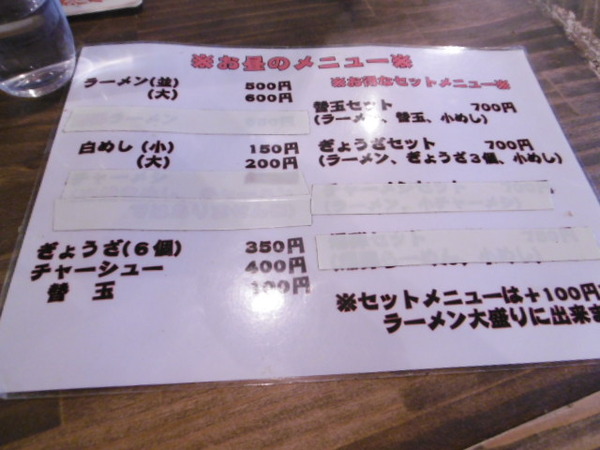 ※お昼のメニュー※
ラーメン(並) 500円
(大) 600円
白めし(小) 150円
(大) 200円
ぎょうざ(6個) 350円
チャーシュー 400円
替 玉 100円
※お得なセットメニュー※
替玉セット 700円
(ラーメン、替玉、小めし)
ぎょうざセット 700円
(ラーメン、ぎょうざ3個、小めし)
※セットメニューは+100円
ラーメン大盛りに出来ま